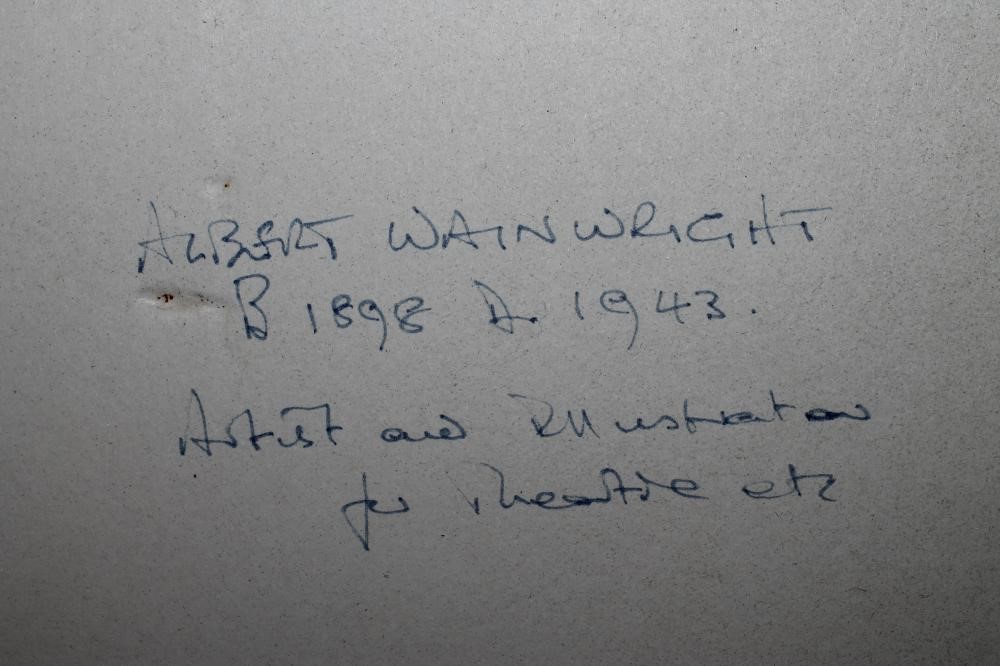 ALBERT WAINWRIGHT
B 1898 D. 1943.
Artist and Illustrator
for Theatre etc